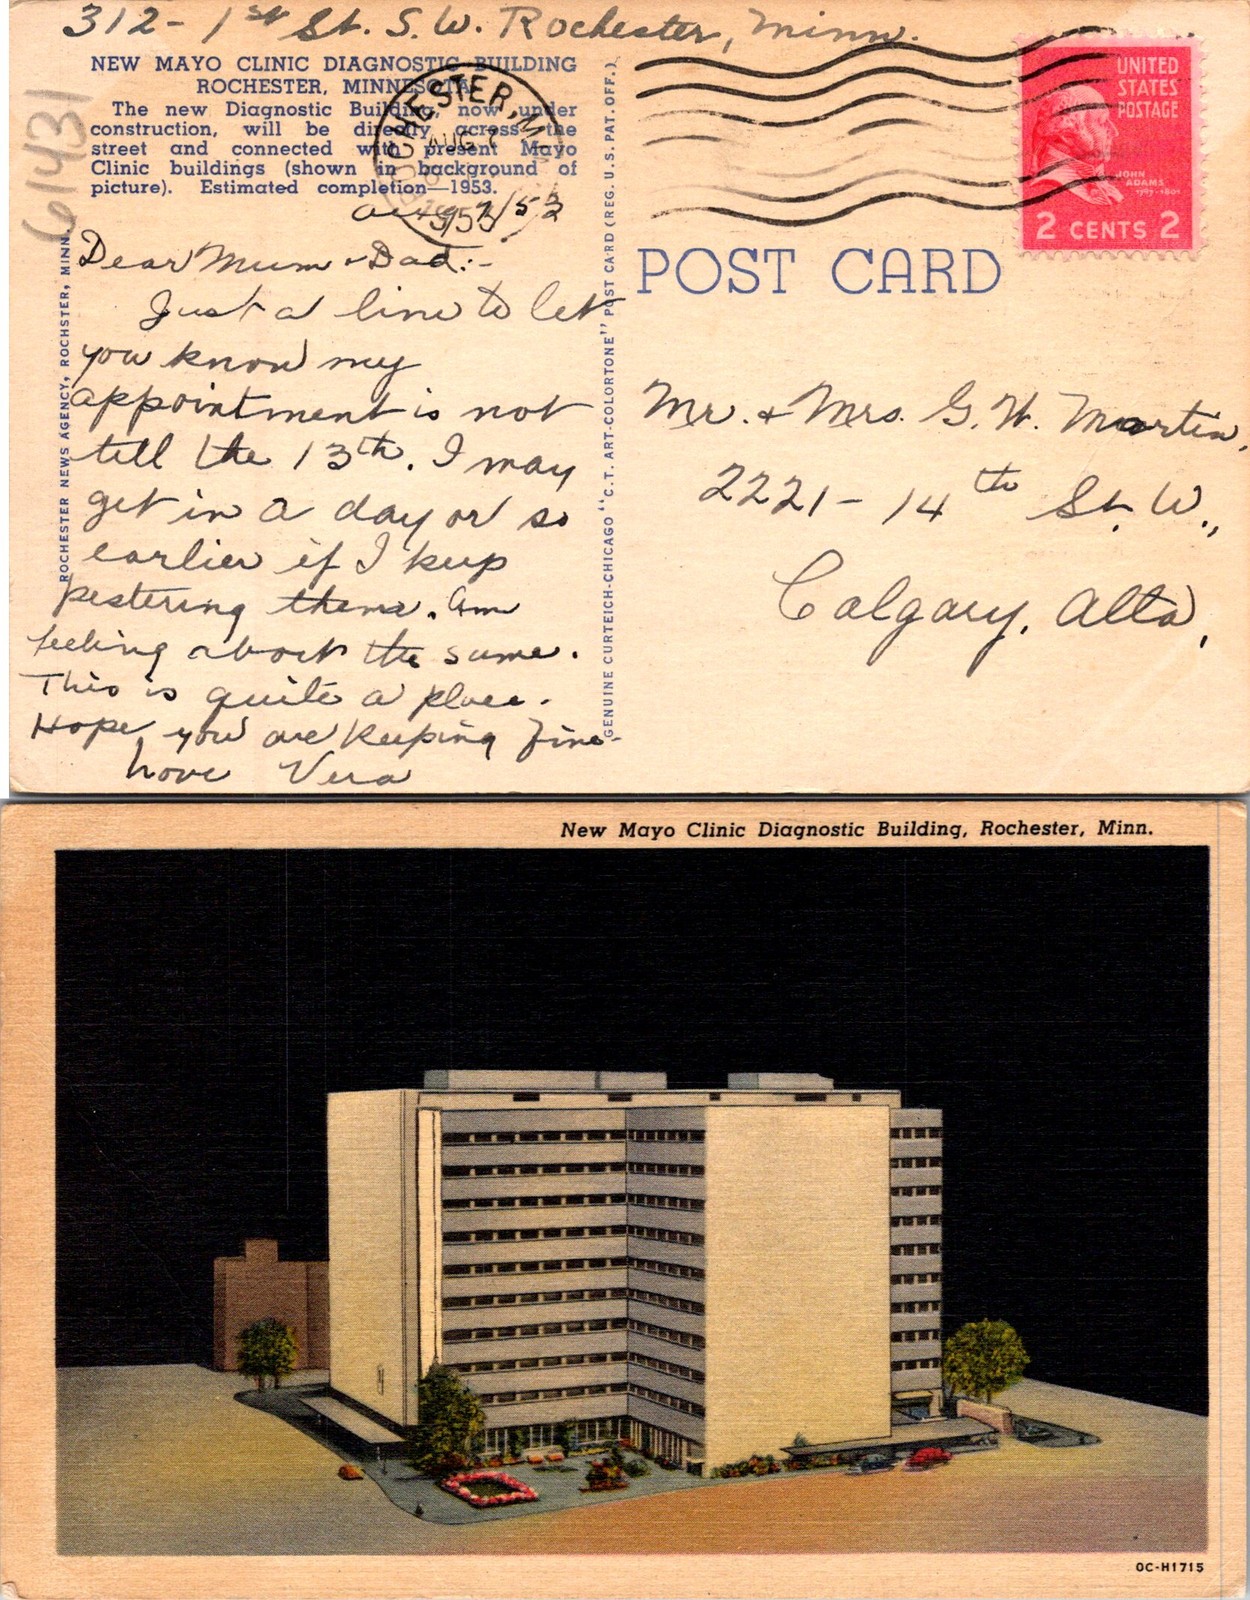 312- 1st St. S.W. Rochester, Minn.
NEW MAYO CLINIC DIAGNOSTIC BUILDING
ROCHESTER, MINNESOTA
The new Diagnostic Building, now under
construction, will be directly across the
street and connected with present Mayo
Clinic buildings (shown in background of
picture). Estimated completion—1953.
61431
ROCHESTER, MINN.
AUG 7
1953
Aug 7/53
Dear Mum & Dad:-
Just a line to let
you know my
appointment is not
till the 13th. I may
get in a day or so
earlier if I keep
pestering them. Am
feeling about the same.
This is quite a place.
Hope you are keeping fine-
Love Vera
ROCHESTER NEWS AGENCY, ROCHSTER, MINN.
GENUINE CURTEICH-CHICAGO "C.T. ART-COLORTONE" POST CARD (REG. U.S. PAT. OFF.)
UNITED
STATES
POSTAGE
JOHN
ADAMS
1797-1801
2 CENTS 2
POST CARD
Mr. & Mrs. G. W. Martin,
2221- 14th St. W.,
Calgary, Alta,
New Mayo Clinic Diagnostic Building, Rochester, Minn.
OC-H1715